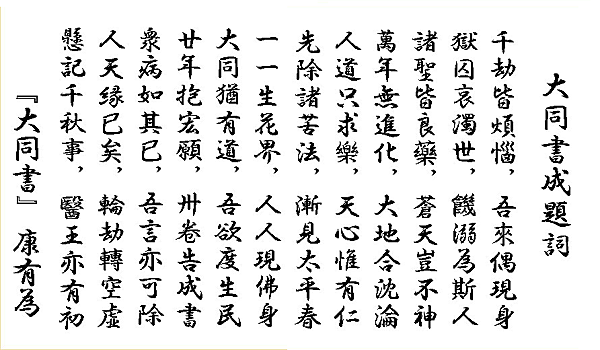 大同書成題詞
千劫皆煩惱，吾來偶現身
獄囚哀濁世，饑溺為斯人
諸聖皆良藥，蒼天豈不神
萬年無進化，大地合沈淪
人道只求樂，天心惟有仁
先除諸苦法，漸見太平春
一一生花界，人人現佛身
大同猶有道，吾欲度生民
廿年抱宏願，卅卷告成書
衆病如其已，吾言亦可除
人天缘已矣，輪劫轉空虛
懸記千秋事，醫王亦有初
『大同書』 康有為